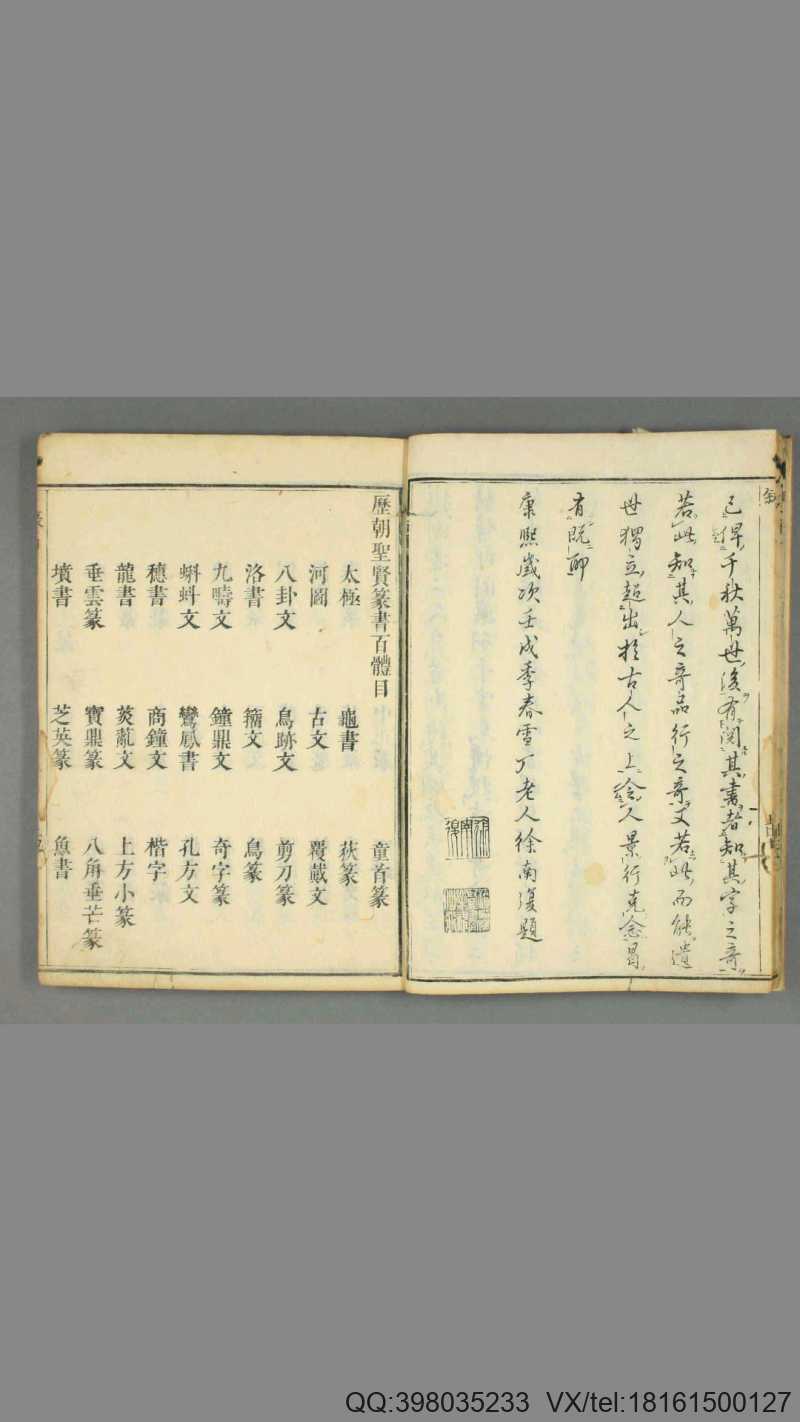 已俾千秋萬世後有閱其書者知其字之奇
若此知其人之奇品行之奇又若此而能遺
世獨立超出於古人之上令人景行克念曷
有既耶
康熙歲次壬戌季春雪厂老人徐南復題
歷朝聖賢篆書百體目
太極 龜書 童首篆
河圖 古文 荻篆
八卦文 鳥跡文 覆戴文
洛書 籀文 剪刀篆
九疇文 鐘鼎文 鳥篆
蝌蚪文 鸞鳳書 奇字篆
穗書 商鐘文 孔方文
龍書 菼薍文 楷字
垂雲篆 寶鼎篆 上方小篆
墳書 芝英篆 八角垂芒篆
魚書
QQ:398035233 VX/tel:18161500127